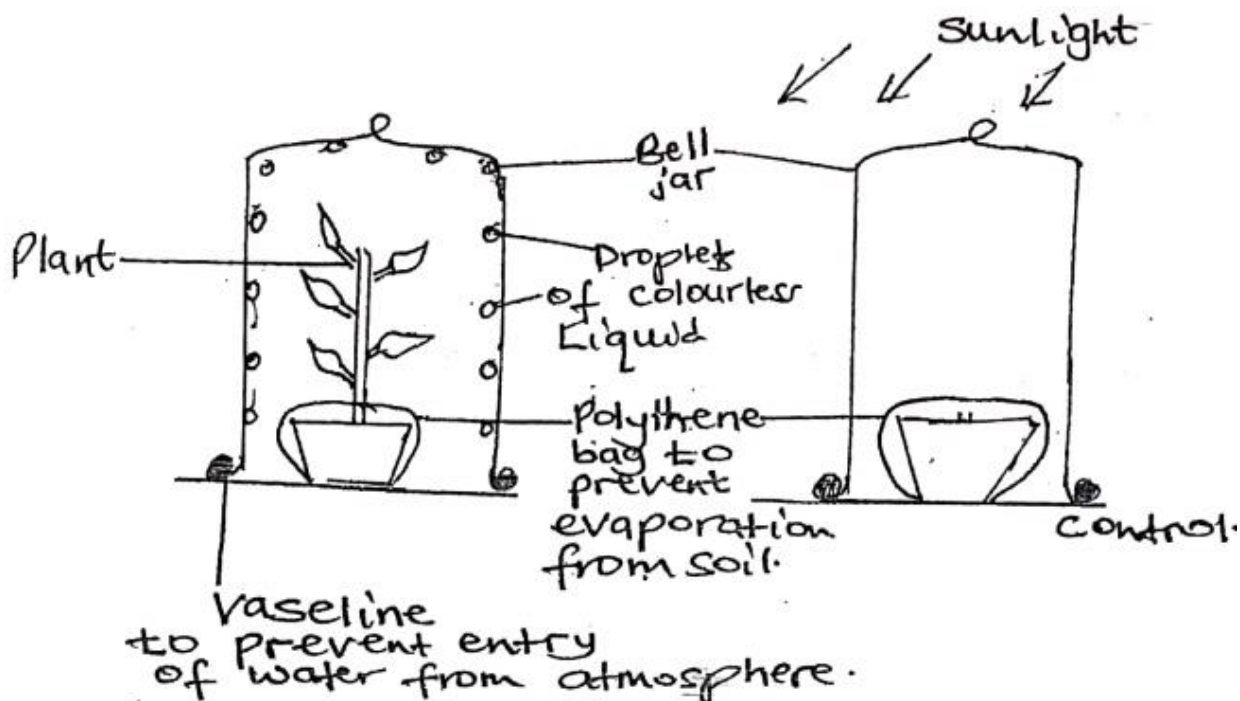 Sunlight
Bell
jar
Plant
Droplets
of colourless
Liquid
Polythene
bag to
prevent
evaporation
from soil.
control.
Vaseline
to prevent entry
of water from atmosphere.